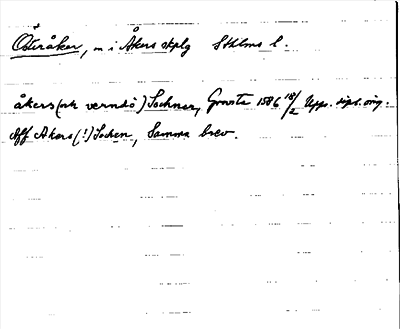 Österåker, sn i Åkers skplg Sthlms l.
åkers (och verndö) Sochner, Gravsta 1586 18/2 Upps. dipl. orig.
Aff Akers (!) Socken, Samma brev.